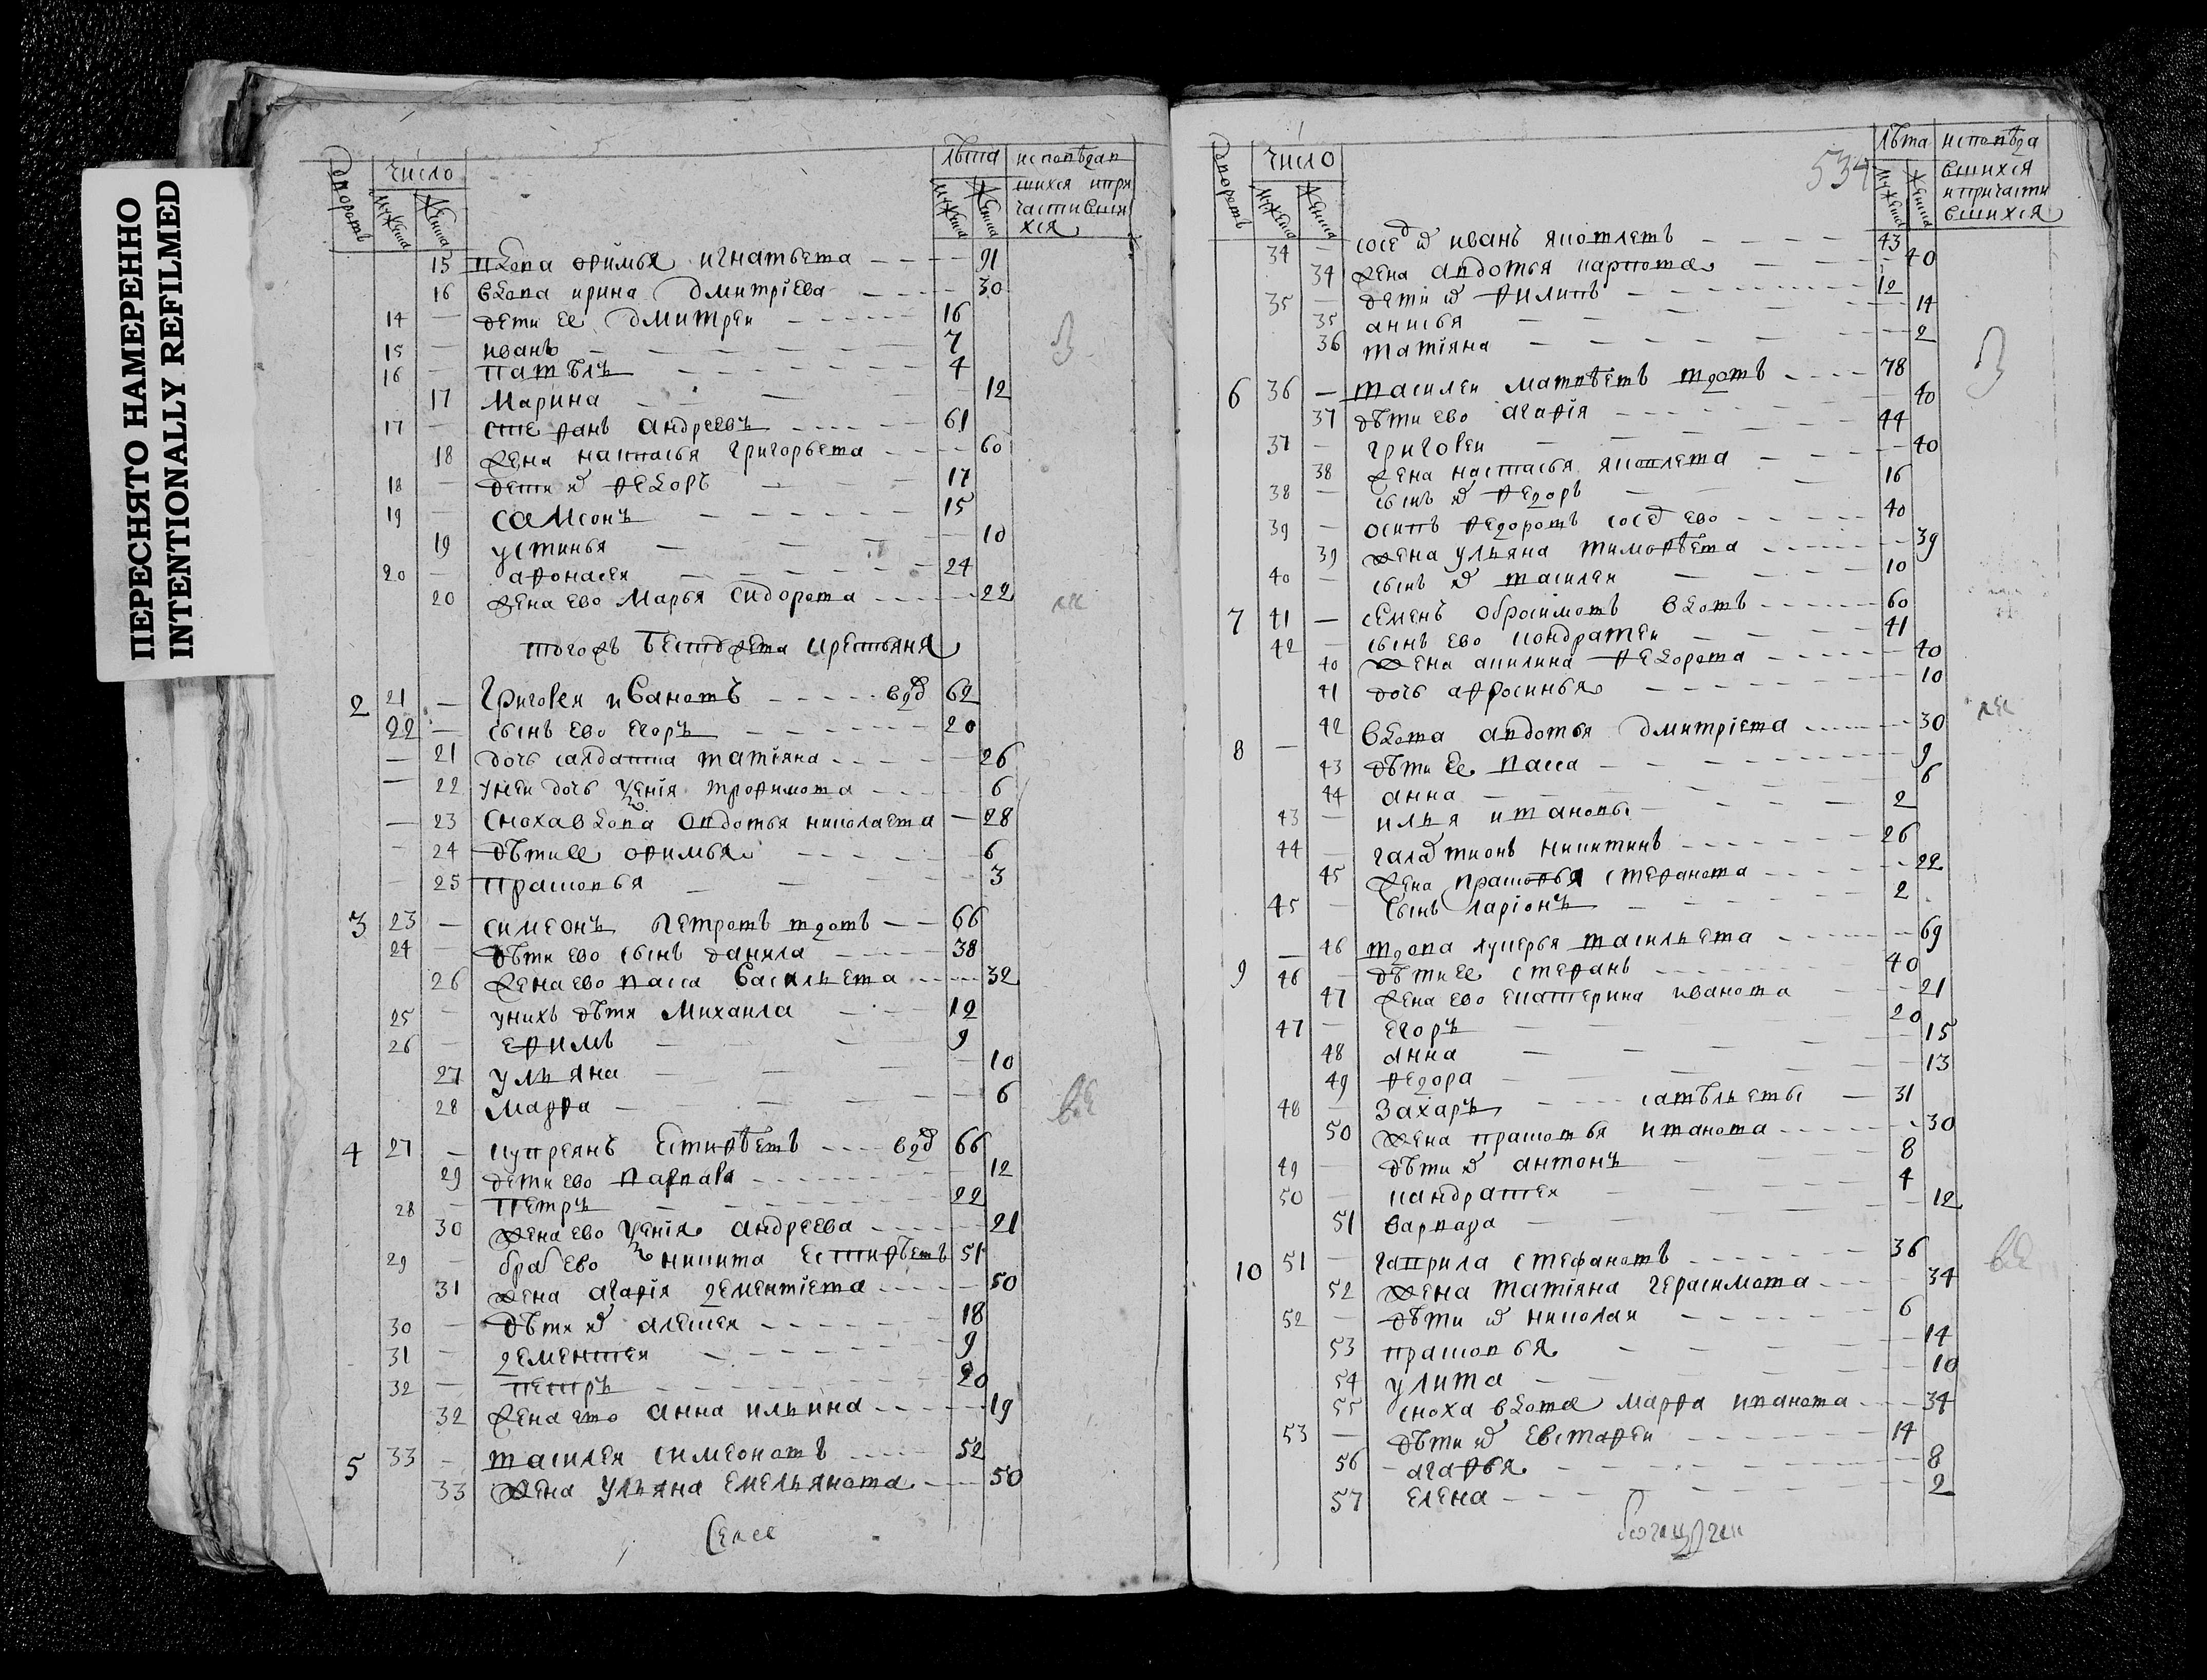 ПЕРЕСНЯТО НАМЕРЕННО
INTENTIONALLY REFILMED
дворовъ число лѣта исповѣдав
мужеска женска мужеска женска шихся и при
частивши
хся
15 вдова офимья игнатьева 91
16 вдова ирина дмитрїева 30
14 дети ее дмитреи 16
15 иванъ 7
16 павѣлъ 4
17 марина 12
17 стефанъ андреевъ 61
18 жена настасья григорьева 60
18 дети их федоръ 17
19 самсонъ 15
19 устинья 10
20 афонасеи 24
20 жена ево марья сидорова 22
крестьяня
2 21 григореи ивановъ вдв 62
22 сынъ ево егоръ 20
21 дочь салдатка татїяна 26
22 унеи дочь ксенїя трофимова 6
23 сноха вдова авдотья николаева 28
24 дѣти ее офимья 6
25 прасковья 3
3 23 симеонъ петровъ вдовъ 66
24 дѣти ево сынъ данила 38
26 жена ево васса васильева 32
25 унихъ дѣти михаила 12
26 ефимъ 9
27 ульяна 10
28 марфа 6
4 27 купреянъ естифѣевъ вдв 66
29 дети ево варвара 12
28 петръ 22
30 жена ево ксенїя андреева 21
29 брат ево никита естифѣевъ 51
31 жена агафїя дементїева 50
30 дѣти их алексеи 18
31 дементеи 9
32 петръ 20
32 жена ево анна ильина 19
5 33 василеи симеоновъ 52
33 жена ульяна емельянова 50
дворовъ число лѣта исповѣда
мужеска женска 534 мужеска женска вшихся
и причасти
вшихся
34 сосед их иванъ яковлевъ 43
34 жена авдотья карпова 40
35 дети их филипъ 12
35 анисья 14
36 татїяна 2
6 36 василеи матвѣевъ вдовъ 78
37 дѣти ево агафїя 40
37 григореи 44
38 жена настасья яковлева 40
38 сынъ их федоръ 16
39 осипъ федоровъ сосед ево 40
39 жена ульяна тимофѣева 39
40 сынъ их василеи 10
7 41 семенъ обросимовъ вдовъ 60
42 сынъ ево кондратеи 41
40 жена акилина федорова 40
41 дочь афросинья 10
8 42 вдова авдотья дмитрїева 30
43 дѣти ее васса 9
44 анна 6
43 илья ивановы 2
44 галактионъ никитинъ 26
45 жена прасковья стефанова 22
45 сынъ ларїонъ 2
9 46 вдова лукерья васильева 69
46 дѣти ее стефанъ 40
47 жена ево екатерина иванова 21
47 егоръ 20
48 анна 15
49 федора 13
48 захаръ савѣльевы 31
50 жена прасковья иванова 30
49 дѣти их антонъ 8
50 кандратеи 4
51 варвара 12
10 51 гаврила стефановъ 36
52 жена татїяна герасимова 34
52 дѣти их николаи 6
53 прасковья 14
54 улита 10
55 сноха вдова марфа иванова 34
53 дѣти их евстафеи 14
56 агафья 8
57 елена 2